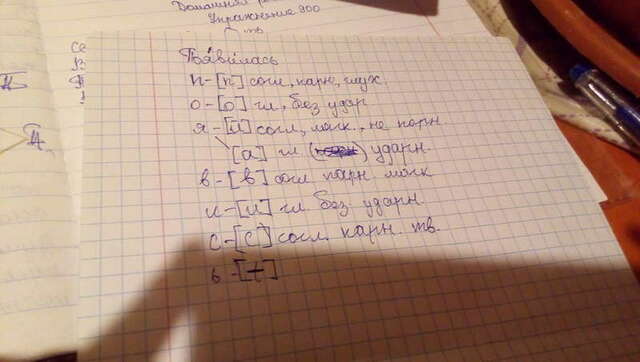 Домашняя
Упражнение 300
Появилась
п-[п] согл, парн, глух.
о-[о] гл, без удар
я-[й] согл, мягк., не парн
[а] гл ударн
в-[в] согл парн мягк
и-[и] гл без ударн
с-[с] согл. парн. тв.
ь-[-]